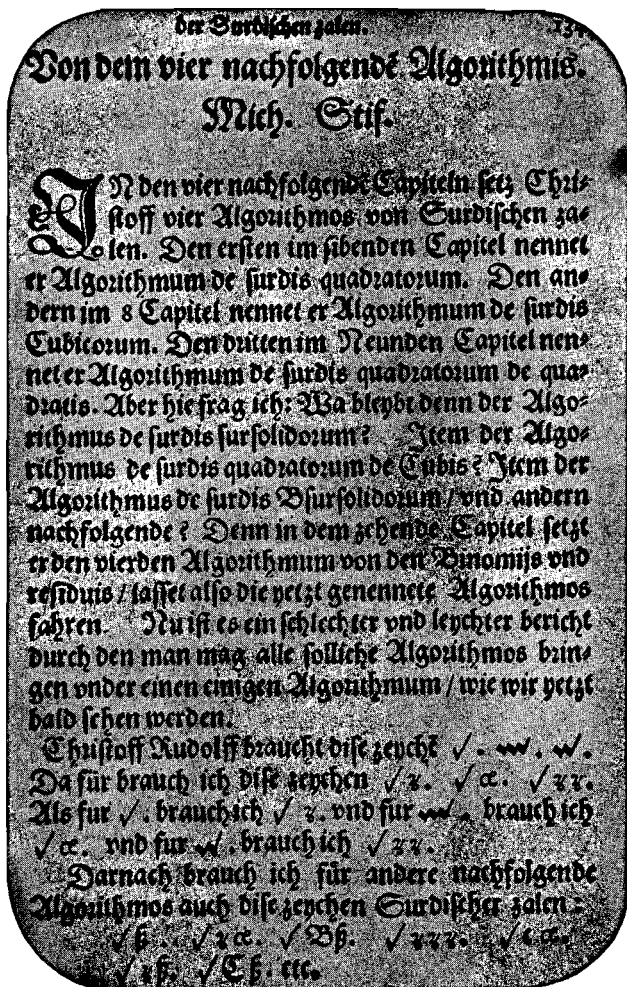 der Surdischen zalen. 134
Von dem vier nachfolgendē Algorithmis.
Mich. Stif.
IN den vier nachfolgendē Capiteln setz Chri⸗
stoff vier Algorithmos von Surdischen za⸗
len. Den ersten im sibenden Capitel nennet
er Algorithmum de surdis quadratorum. Den an⸗
dern im 8 Capitel nennet er Algorithmum de surdis
Cubicorum. Den dritten im Neunden Capitel nen⸗
net er Algorithmum de surdis quadratorum de qua⸗
dratis. Aber hie frag ich: Wa bleybt denn der Algo⸗
rithmus de surdis sursolidorum? Item der Algo⸗
rithmus de surdis quadratorum de Cubis? Item der
Algorithmus de surdis Bsursolidorum / vnd andern
nachfolgende? Denn in dem zehende Capitel setzt
er den vierden Algorithmum von den Binomijs vnd
residuis / lasset also die yetzt genennete Algorithmos
fahren. Nu ist es ein schlechter vnd leychter bericht
durch den man mag alle solliche Algorithmos brin⸗
gen vnder einen einigen Algorithmum / wie wir yetzt
bald sehen werden.
Christoff Rudolff braucht dise zeychē √.
Da für brauch ich dise zeychen √ʒ. √cc. √ʒʒ.
Als fur √. brauch ich √ʒ. vnd fur brauch ich
√cc. vnd fur . brauch ich √ʒʒ.
Darnach brauch ich für andere nachfolgende
Algorithmos auch dise zeychen Surdischer zalen:
√ß. √ʒcc. √Bß. √ʒʒʒ.
√ʒß. √Cß. etc.